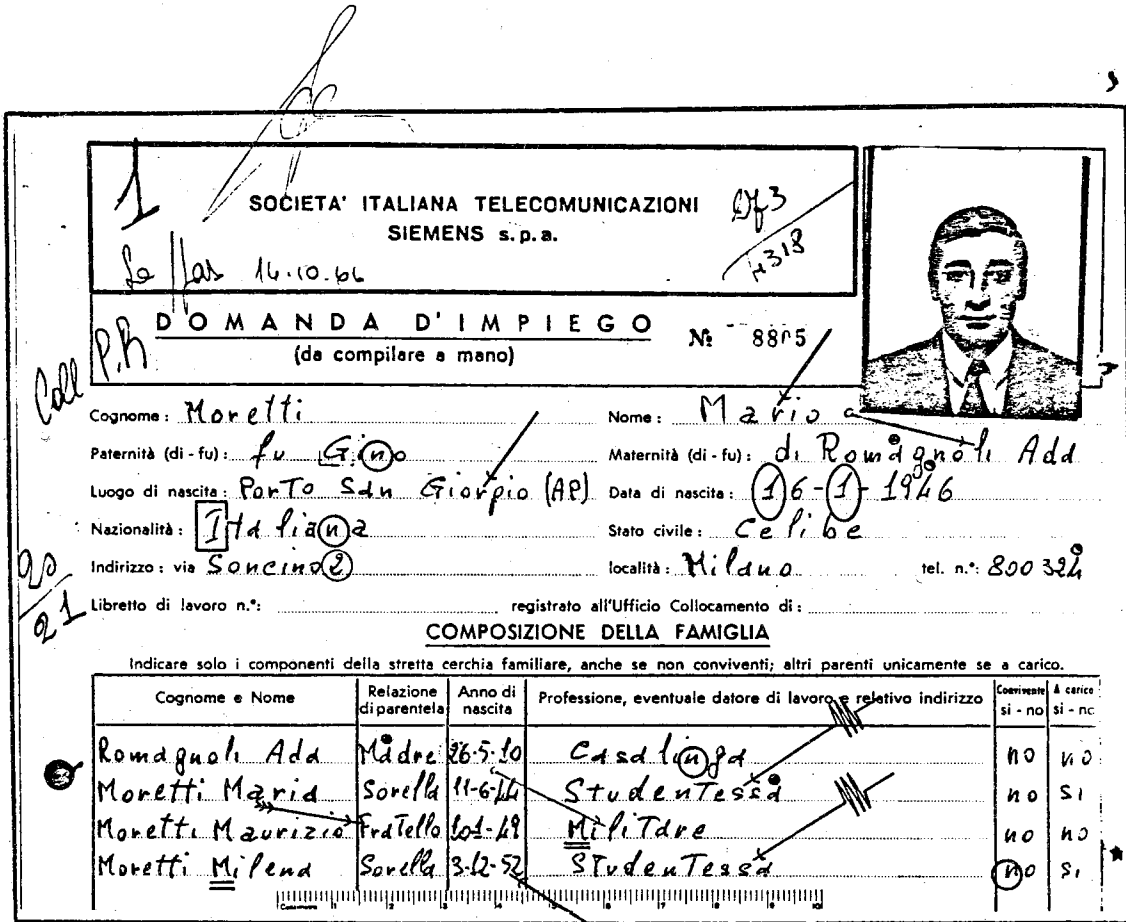 1
SOCIETA' ITALIANA TELECOMUNICAZIONI
SIEMENS s.p.a.
4318
14.10.66
DOMANDA D'IMPIEGO
(da compilare a mano)
N: 8805
Coll P.R
Cognome: Moretti Nome: Mario
Paternità (di - fu): fu Gino Maternità (di - fu): di Romagnoli Ada
Luogo di nascita: Porto San Giorgio (AP) Data di nascita: 16-1-1946
Nazionalità: Italiana Stato civile: Celibe
Indirizzo: via Soncino 2 località: Milano tel. n.°: 800324
20
21
Libretto di lavoro n.°: registrato all'Ufficio Collocamento di:
COMPOSIZIONE DELLA FAMIGLIA
Indicare solo i componenti della stretta cerchia familiare, anche se non conviventi; altri parenti unicamente se a carico.
Cognome e Nome Relazione di parentela Anno di nascita Professione, eventuale datore di lavoro e relativo indirizzo Convivente si - no A carico si - no
Romagnoli Ada Madre 26-5-10 Casalinga no no
Moretti Maria Sorella 11-6-44 Studentessa no si
Moretti Maurizio Fratello 1-49 Militare no no
Moretti Milena Sorella 3-12-52 Studentessa no si